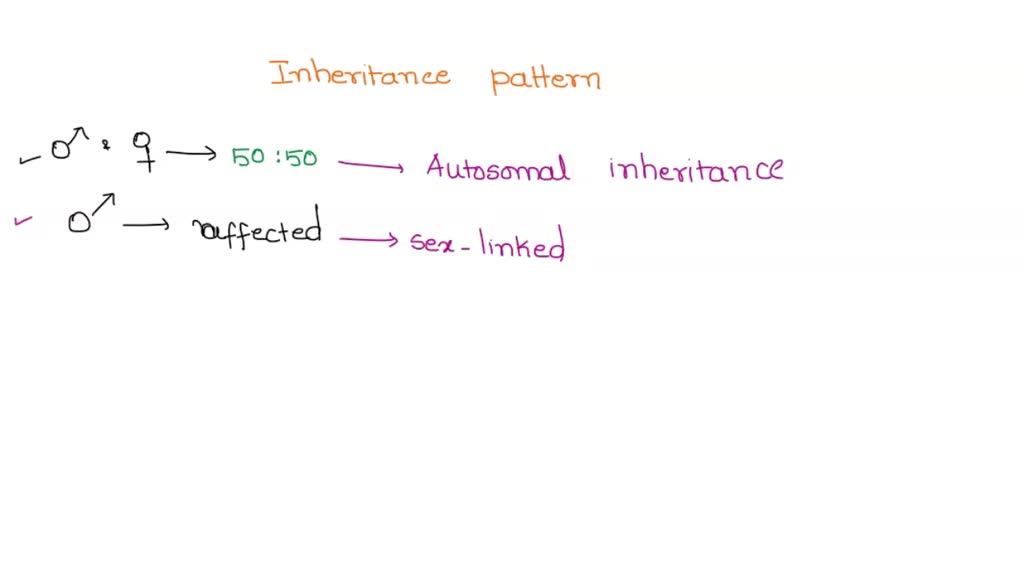 Inheritance pattern
♂ & ♀ → 50:50 → Autosomal inheritance
♂ → affected → sex-linked